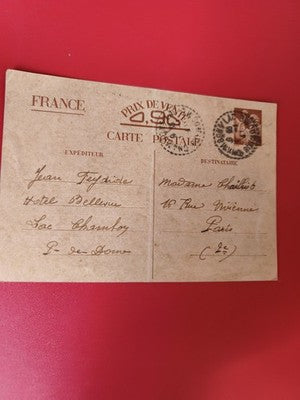 FRANCE
PRIX DE VENTE
0,90
CARTE POSTALE
EXPÉDITEUR
DESTINATAIRE
Jean
Hotel Bellevue
Lac Chambon
P- de- Dome
Madame
16 Rue Vivienne
Paris
(2e)